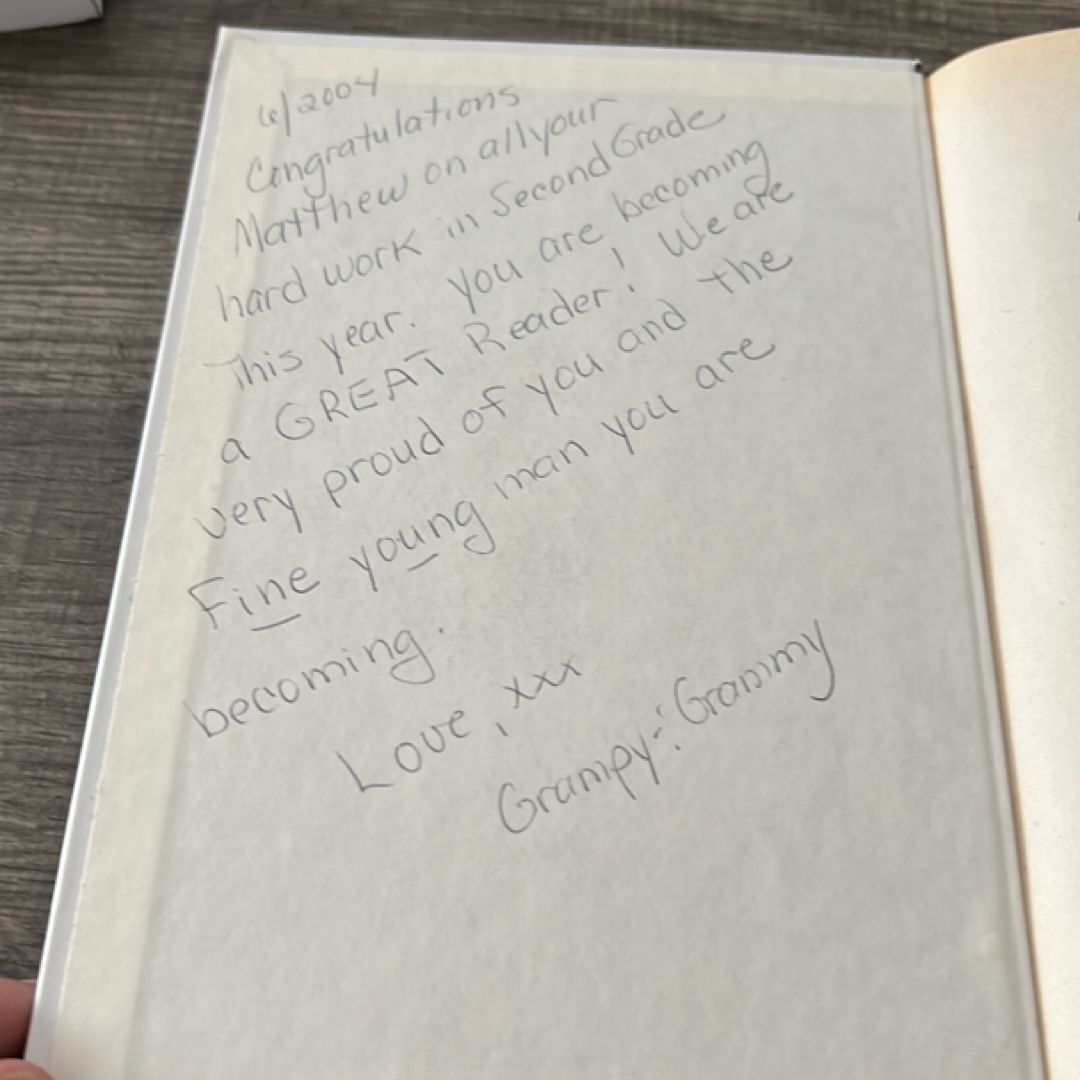 6/2004
Congratulations
Matthew on all your
hard work in Second Grade
This year. you are becoming
a GREAT Reader! We are
very proud of you and the
Fine young man you are
becoming.
Love, xxx
Grampy -:- Grammy